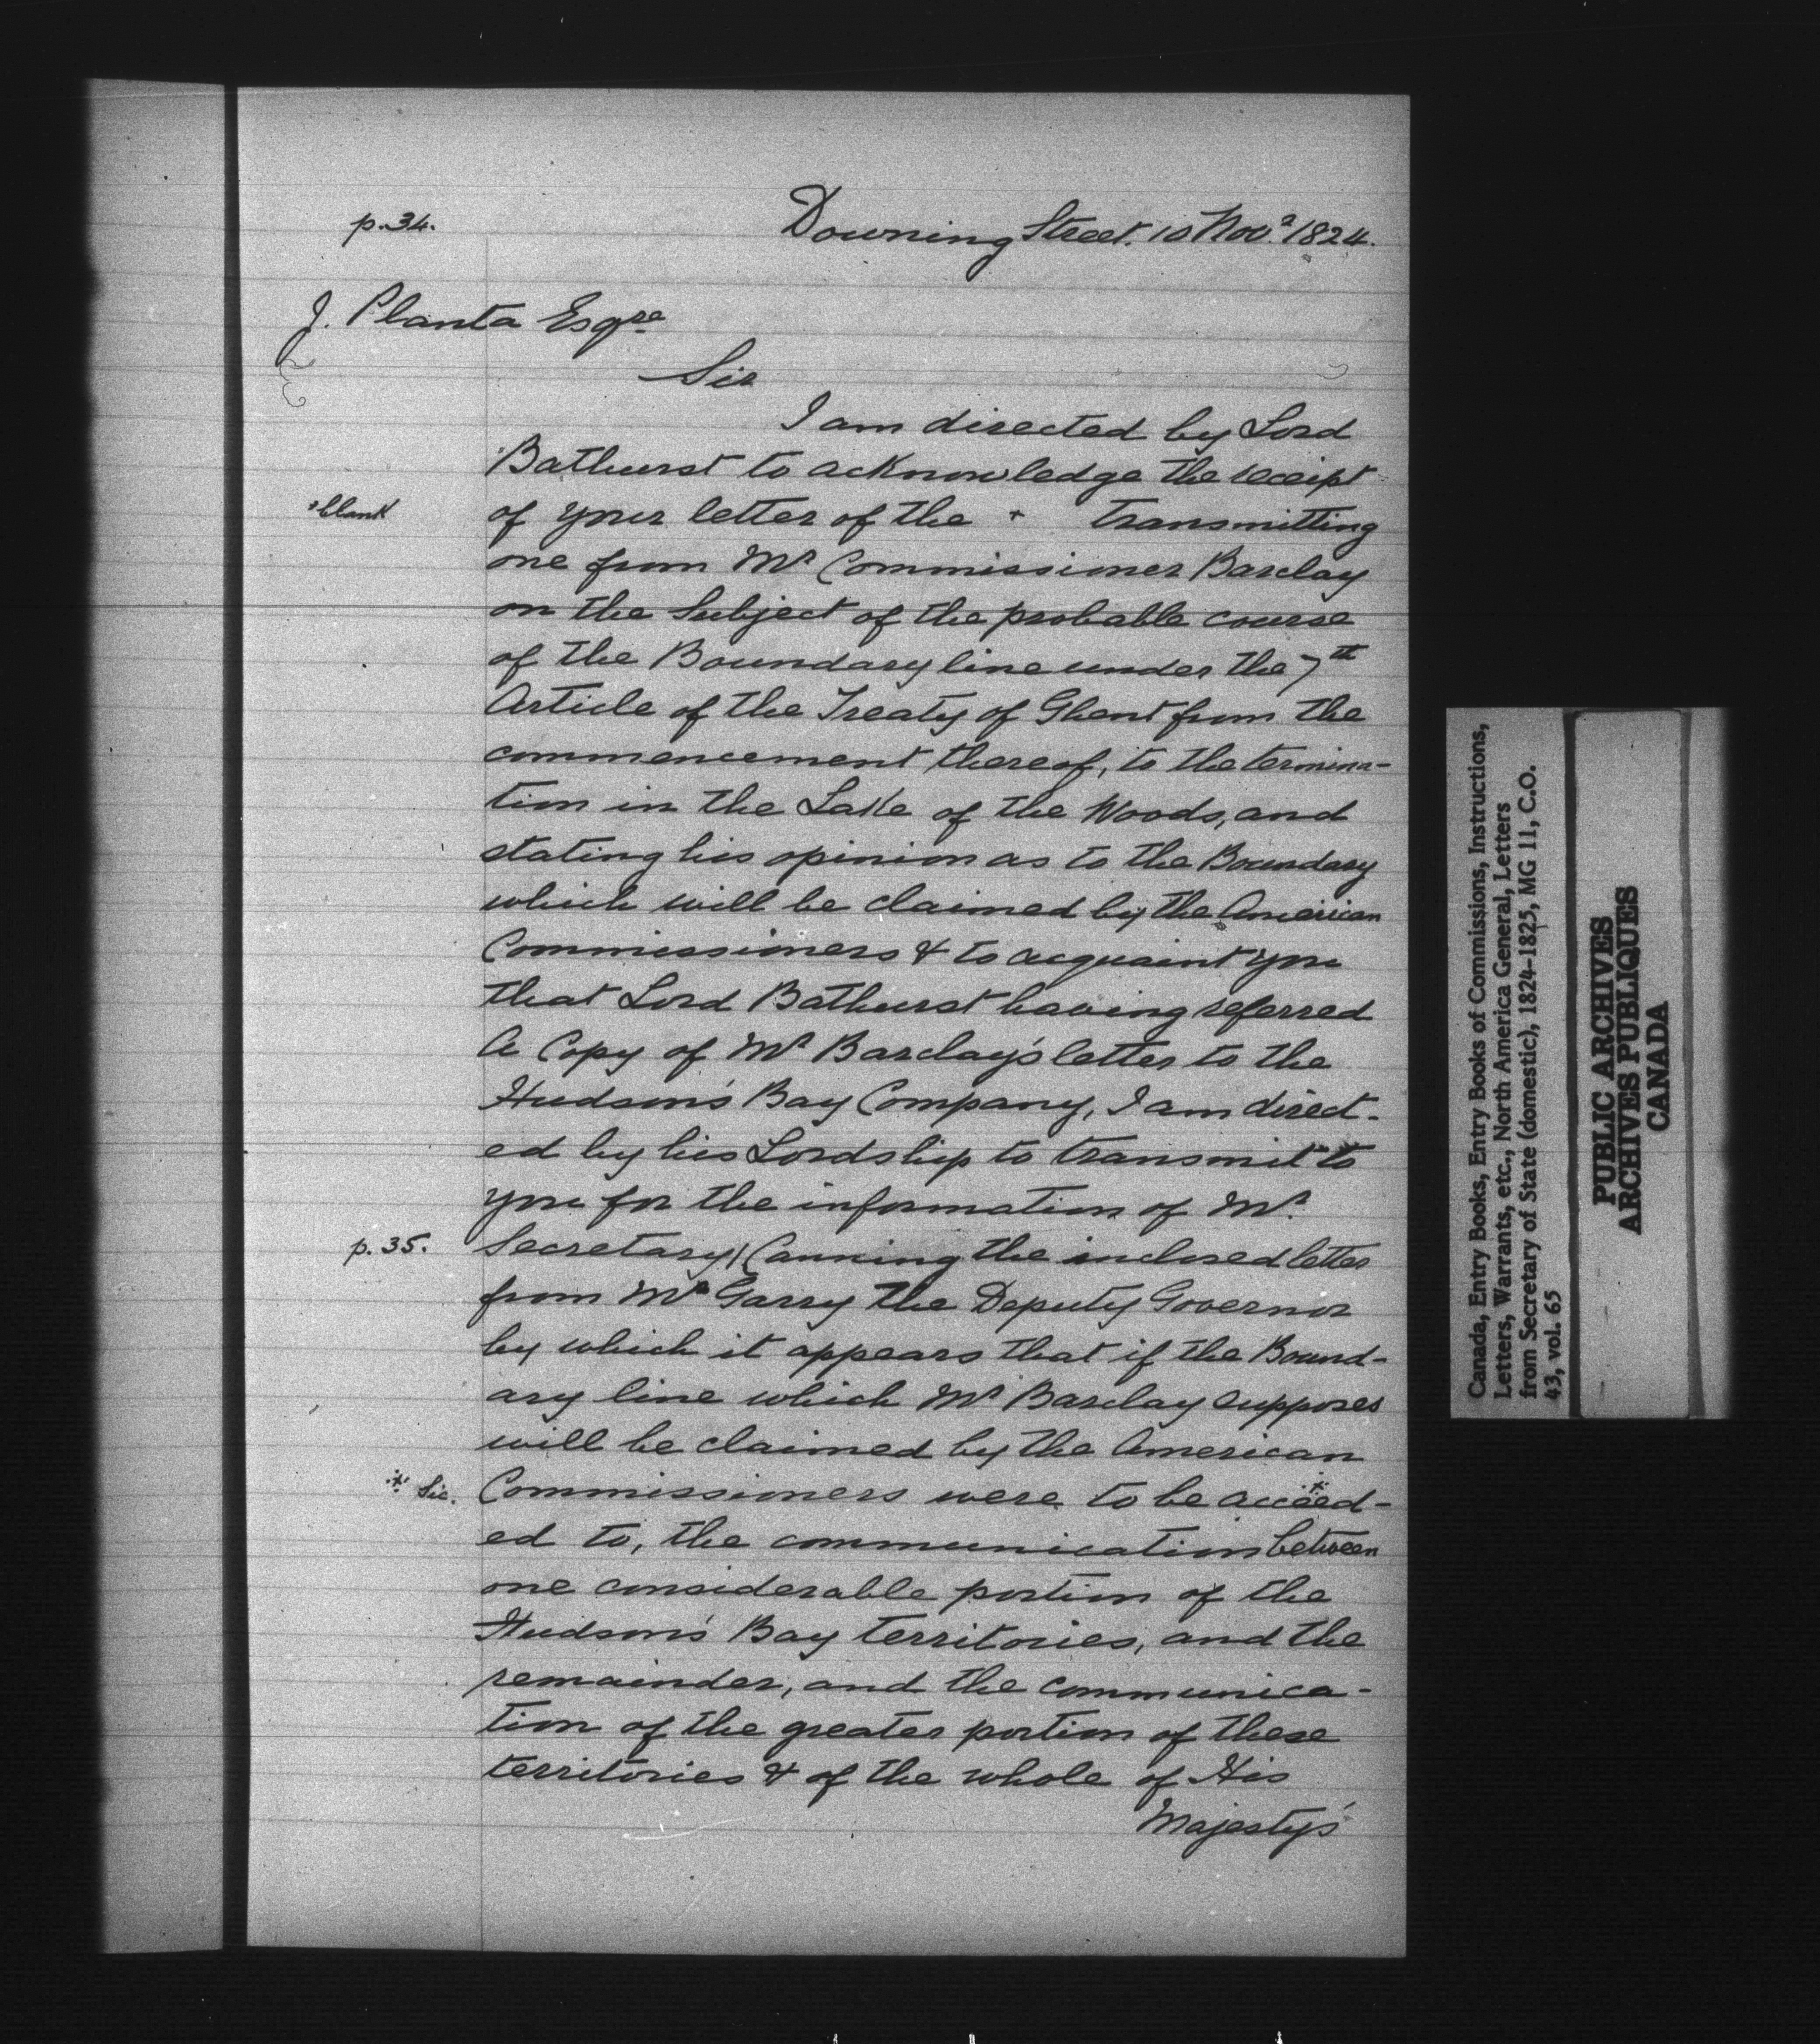 p. 34.
Downing Street. 10 Nov.r 1824.
J. Planta Esqre
Sir
I am directed by Lord
Bathurst to acknowledge the receipt
+blank
of your letter of the + transmitting
one from Mr Commissioner Barclay
on the Subject of the probable course
of the Boundary line under the 7th
Article of the Treaty of Ghent from the
commencement thereof, to the termina-
tion in the Lake of the Woods, and
stating his opinion as to the Boundary
which will be claimed by the American
Commissioners & to acquaint you
that Lord Bathurst having referred
a Copy of Mr Barclay's letter to the
Hudson's Bay Company, I am direct-
ed by his Lordship to transmit to
you for the information of Mr.
p. 35.
Secretary | Canning the inclosed letter
from Mr Garry the Deputy Governor
by which it appears that if the Bound-
ary line which Mr Barclay supposes
will be claimed by the American
* Sic.
Commissioners were to be acceed*-
ed to, the communication between
one considerable portion of the
Hudson's Bay territories, and the
remainder, and the communica-
tion of the greater portion of these
territories & of the whole of His
Majesty's
Canada, Entry Books, Entry Books of Commissions, Instructions,
Letters, Warrants, etc., North America General, Letters
from Secretary of State (domestic), 1824-1825, MG 11, C.O.
43, vol. 65
PUBLIC ARCHIVES
ARCHIVES PUBLIQUES
CANADA